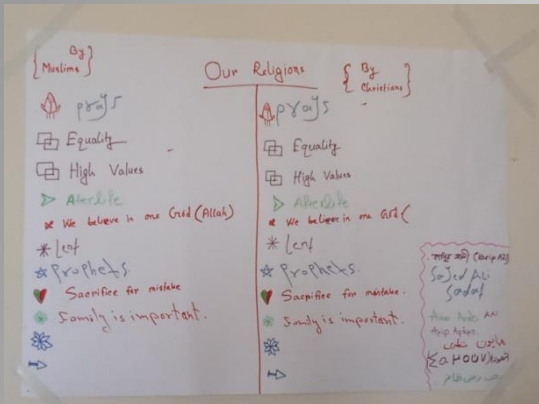 Our Religions
{ By Muslims }
prays
Equality
High Values
Afterlife
We believe in one God (Allah)
Lent
Prophets.
Sacrifice for mistake
family is important.
{ By Christians }
prays
Equality
High Values
Afterlife
We believe in one God (
Lent
Prophets.
Sacrifice for mistake.
family is important.
Sajed Ali
Sadaf